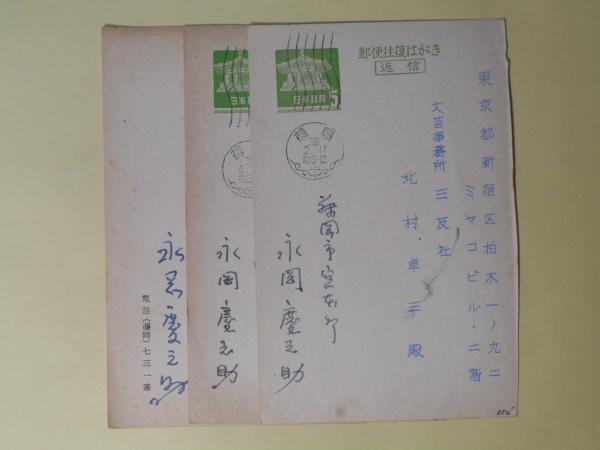 郵便往復はがき
返信
日本郵便
5
藤岡
38
2.11
東京都新宿区柏木一ノ九二
ミヤコビル・二階
文芸事務所 三友社
北村卓三殿
藤岡市
永岡慶之助
日本郵便
永岡慶之助
永岡慶之助
電話(藤岡)七三一番